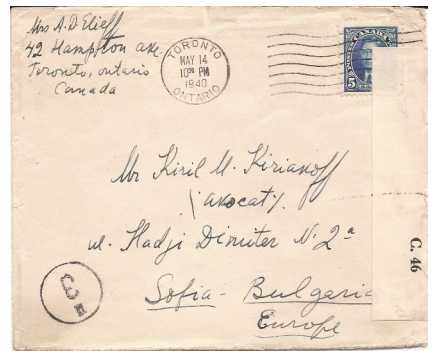 Mrs A. D. Elieff
42 Hampton ave.
Toronto, ontario
Canada
TORONTO
MAY 14
10³⁰ PM
1940
ONTARIO
CANADA
5
Mr Kiril M. Kirianoff
(avocat).
ul. Hadji Dimiter N. 2ª
Sofia - Bulgaria
Europe
C. 46